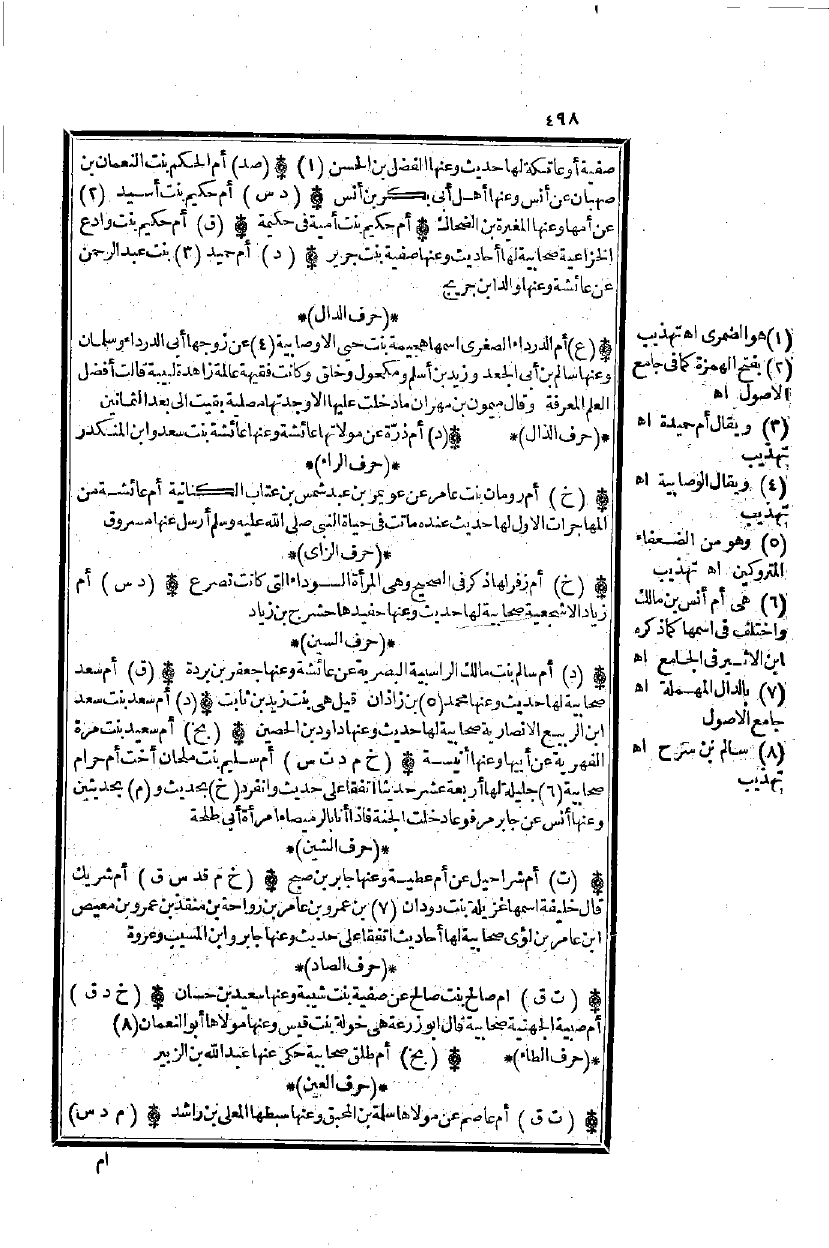 ٤٩٨
صفية أوعاتكة لها حديث وعنها الفضل بن الحسن (١) (صد) أم الحكم بنت النعمان بن
صهبان عن أنس وعنها أهل أبى بكر بن أنس (د س) أم حكيم بنت أسيد (٢)
عن أمها وعنها المغيرة بن الضحاك أم حكيم بنت أمية فى حكيمة (ق) أم حكيم بنت وادع
الخزاعية صحابية لها أحاديث وعنها صفية بنت جرير (د) أم حميد (٣) بنت عبد الرحمن
عن عائشة وعنها والد ابن جريج
*(حرف الدال)*
(ع) أم الدرداء الصغرى اسمها هجيمة بنت حيى الاوصابية (٤) عن زوجها أبى الدرداء وسلمان
وعنها سالم بن أبى الجعد وزيد بن أسلم ومكحول وخلق وكانت فقيهة عالمة زاهدة لبيبة قالت أفضل
العلم المعرفة وقال ميمون بن مهران مادخلت عليها الاوجدتها مصلية بقيت الى بعد الثمانين
*(حرف الذال)* (د) أم ذرّة عن مولاتها عائشة وعنها عائشة بنت سعد وابن المنكدر
*(حرف الراء)*
(خ) أم رومان بنت عامر بن عويمر بن عبد شمس بن عتاب الكنانية أم عائشة من
المهاجرات الاول لها حديث عنده ماتت فى حياة النبى صلى الله عليه وسلم أرسل عنها مسروق
*(حرف الزاى)*
(خ) أم زفر لها ذكر فى الصحيح وهى المرأة السوداء التى كانت تصرع (د س) أم
زياد الاشجعية صحابية لها حديث وعنها حفيدها حشرج بن زياد
*(حرف السين)*
(د) أم سالم بنت مالك الراسبية البصرية عن عائشة وعنها جعفر بن بردة (ق) أم سعد
صحابية لها حديث وعنها محمد (٥) بن زاذان قيل هى بنت زيد بن ثابت (د) أم سعد بنت سعد
ابن الربيع الانصارية صحابية لها حديث وعنها داود بن الحصين (بخ) أم سعيد بنت مرة
الفهرية عن أبيها وعنها أنيسة (خ م د ت س) أم سليم بنت ملحان أخت أم حرام
صحابية (٦) جليلة لها أربعة عشر حديثا اتفقا على حديث وانفرد (خ) بحديث و (م) بحديثين
وعنها أنس عن جابر مرفوعا دخلت الجنة فاذا أنا بالرميصاء امرأة أبى طلحة
*(حرف الشين)*
(ت) أم شراحيل عن أم عطية وعنها جابر بن صبح (خ م قد س ق) أم شريك
قال خليفة اسمها غزيلة بنت دودان (٧) بن عمرو بن عامر بن رواحة بن منقذ بن عمرو بن معيص
ابن عامر بن لؤى صحابية لها أحاديث اتفقا على حديث وعنها جابر وابن المسيب وعروة
*(حرف الصاد)*
(ت ق) ام صالح بنت صالح عن صفية بنت شيبة وعنها سعيد بن حسان (خ د ق)
أم صبية الجهنية صحابية قال ابو زرعة هى خولة بنت قيس وعنها مولاها أبو النعمان (٨)
*(حرف الطاء)* (بخ) أم طلق صحابية حكى عنها عبد الله بن الزبير
*(حرف العين)*
(ت ق) أم عاصم عن مولاها سلمة بن المحبق وعنها سبطها المعلى بن راشد (م د س)
ام
(١) هو الضمرى اه تهذيب
(٢) بفتح الهمزة كما فى جامع
الاصول اه
(٣) ويقال أم حميدة اه
تهذيب
(٤) ويقال الوصابية اه
تهذيب
(٥) وهو من الضعفاء
المتروكين اه تهذيب
(٦) هى أم أنس بن مالك
واختلف فى اسمها كما ذكره
ابن الاثير فى الجامع اه
(٧) بالدال المهملة اه
جامع الاصول
(٨) سالم بن سرح اه
تهذيب